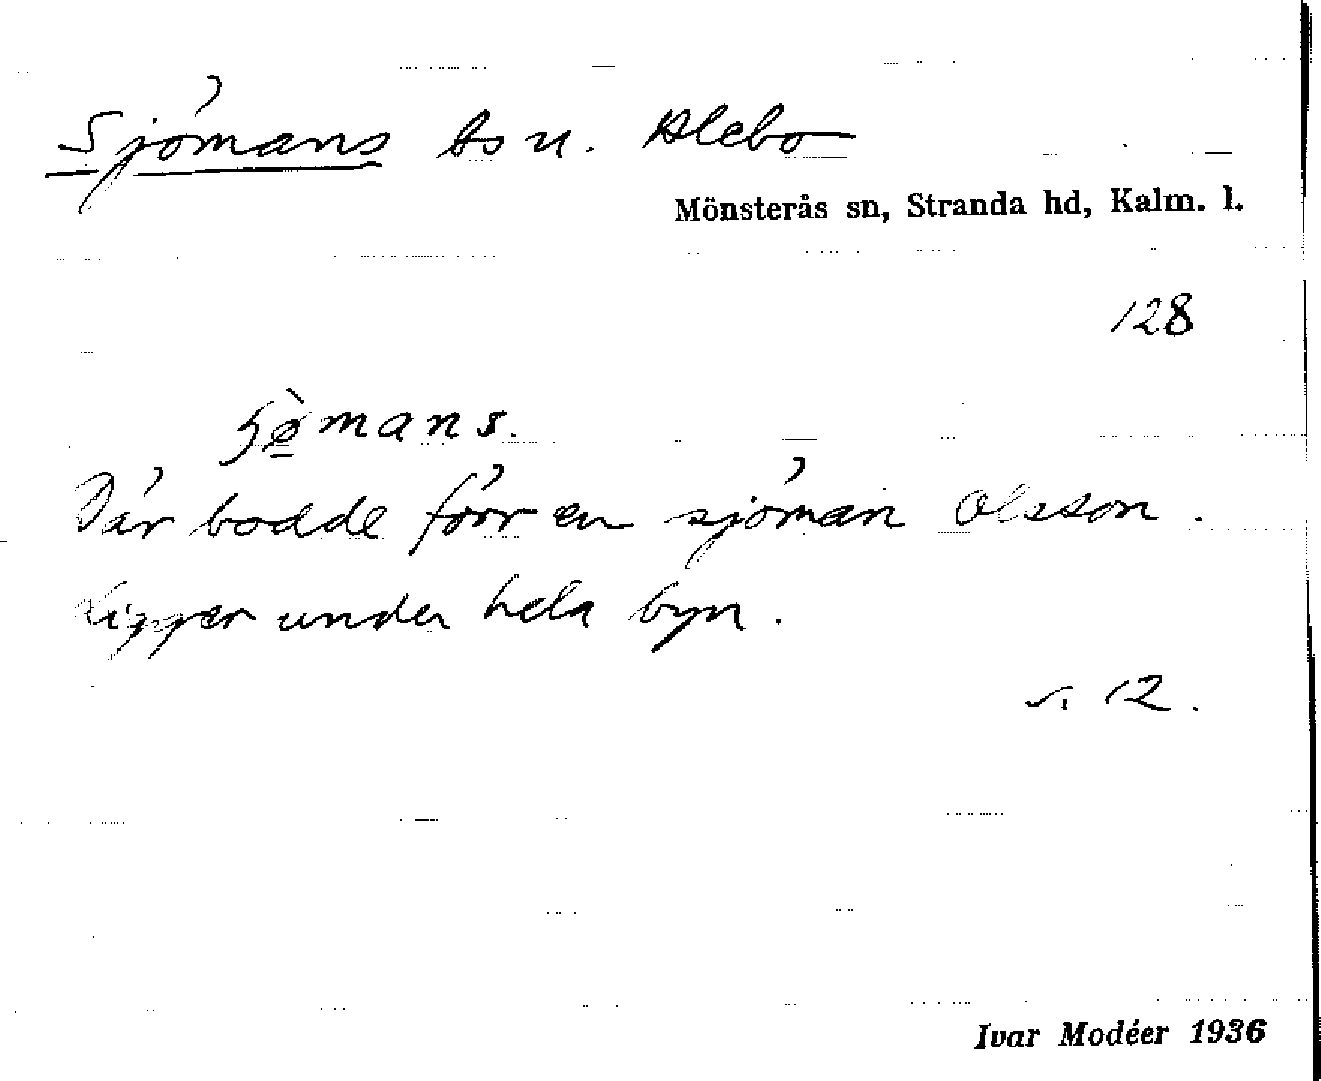 Sjömans ts u. Alebo
Mönsterås sn, Stranda hd, Kalm. l.
128
mans.
Där bodde förr en sjöman Olsson.
Ligger under hela byn.
12.
Ivar Modéer 1936